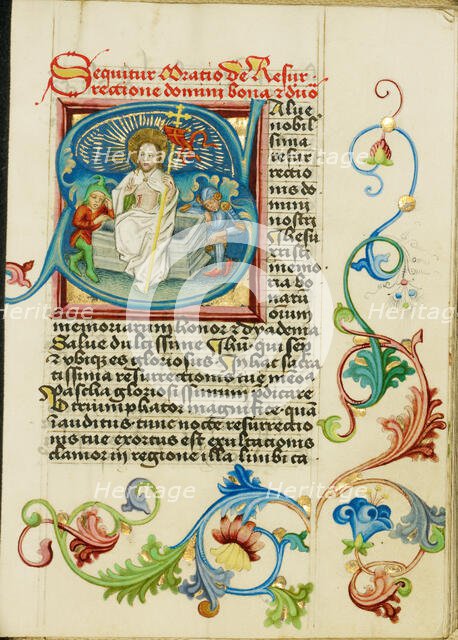 Sequitur Oratio de Resur-
rectione domini bona et
Salue
nobil
issima
resur
rectio
nis do
mini
nostri
Ihesu
xpisti
me
oria
memoriarum honor et dyadema
Salue dulcissime Ihesu qui
et ubique es gloriosus
tissima resurrectione tue
Pascha gloriosissimum
triumphator magnifice
inauditus tunc nocte resurrectio
nis tue exortus est exultationis
clamor in regione illa limbi ca
Heritage
Heritage
Heritage
Heritage
Heritage
Heritage